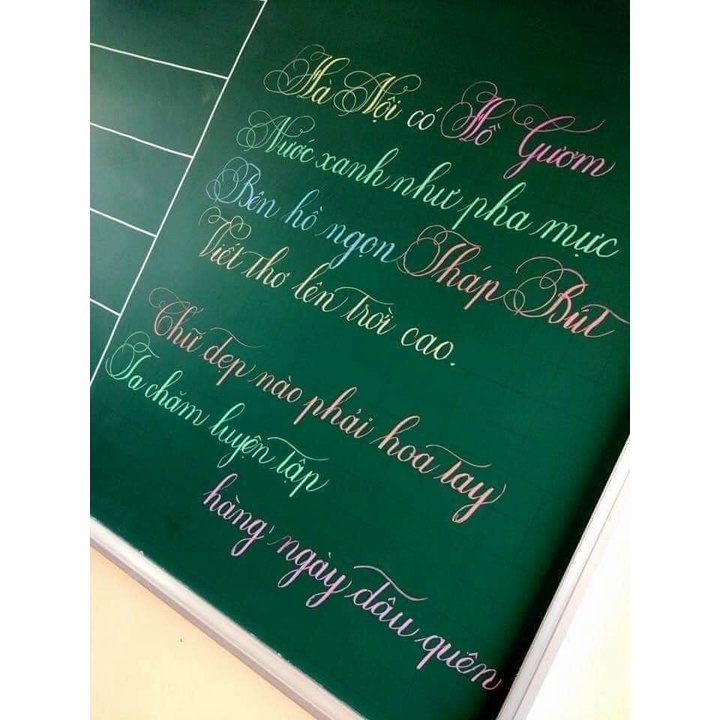 Hà Nội có Hồ Gươm
Nước xanh như pha mực
Bên hồ ngọn Tháp Bút
Viết thơ lên trời cao.
Chữ đẹp nào phải hoa tay
Ta chăm luyện tập
hàng ngày đâu quên